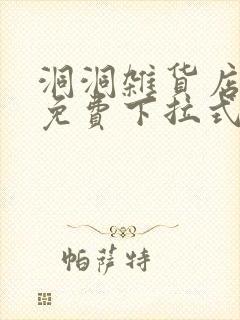 洞洞雜貨店
免費下拉式
帕薩特